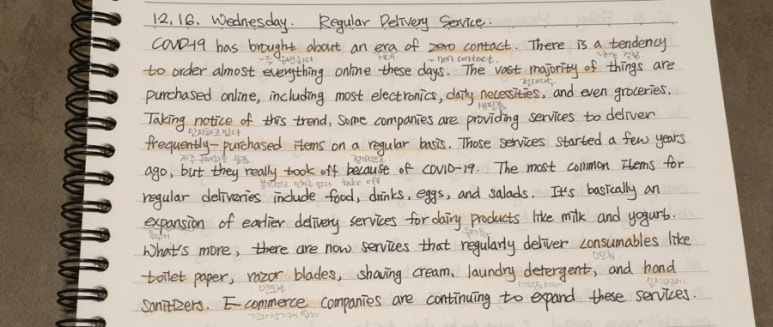 12.16. Wednesday. Regular Delivery Service.
COVID-19 has brought about an era of zero contact. There is a tendency
to order almost everything online these days. The vast majority of things are
non contact.
purchased online, including most electronics, daily necessities, and even groceries.
Taking notice of this trend, some companies are providing services to deliver
frequently-purchased items on a regular basis. Those services started a few years
ago, but they really took off because of COVID-19. The most common items for
take off
regular deliveries include food, drinks, eggs, and salads. It's basically an
expansion of earlier delivery services for dairy products like milk and yogurt.
What's more, there are now services that regularly deliver consumables like
toilet paper, razor blades, shaving cream, laundry detergent, and hand
sanitizers. E-commerce companies are continuing to expand these services.